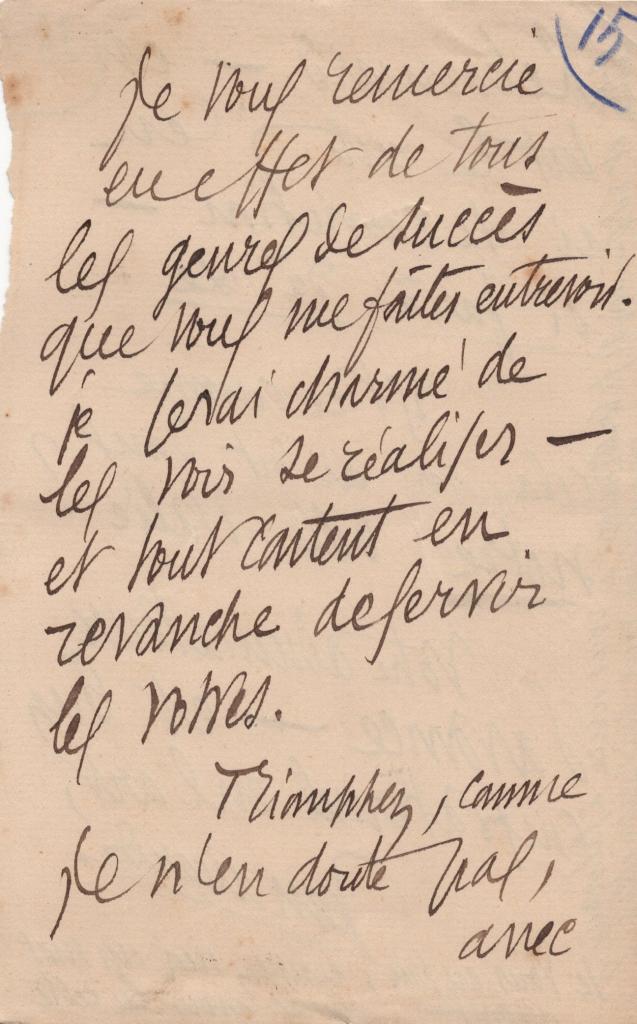 15
Je vous remercie
en effet de tous
les genres de succès
que vous me faites entrevoir.
je serai charmé de
les voir se réaliser —
et tout content en
revanche de servir
les vôtres.
Triomphez, comme
je n'en doute pas,
avec